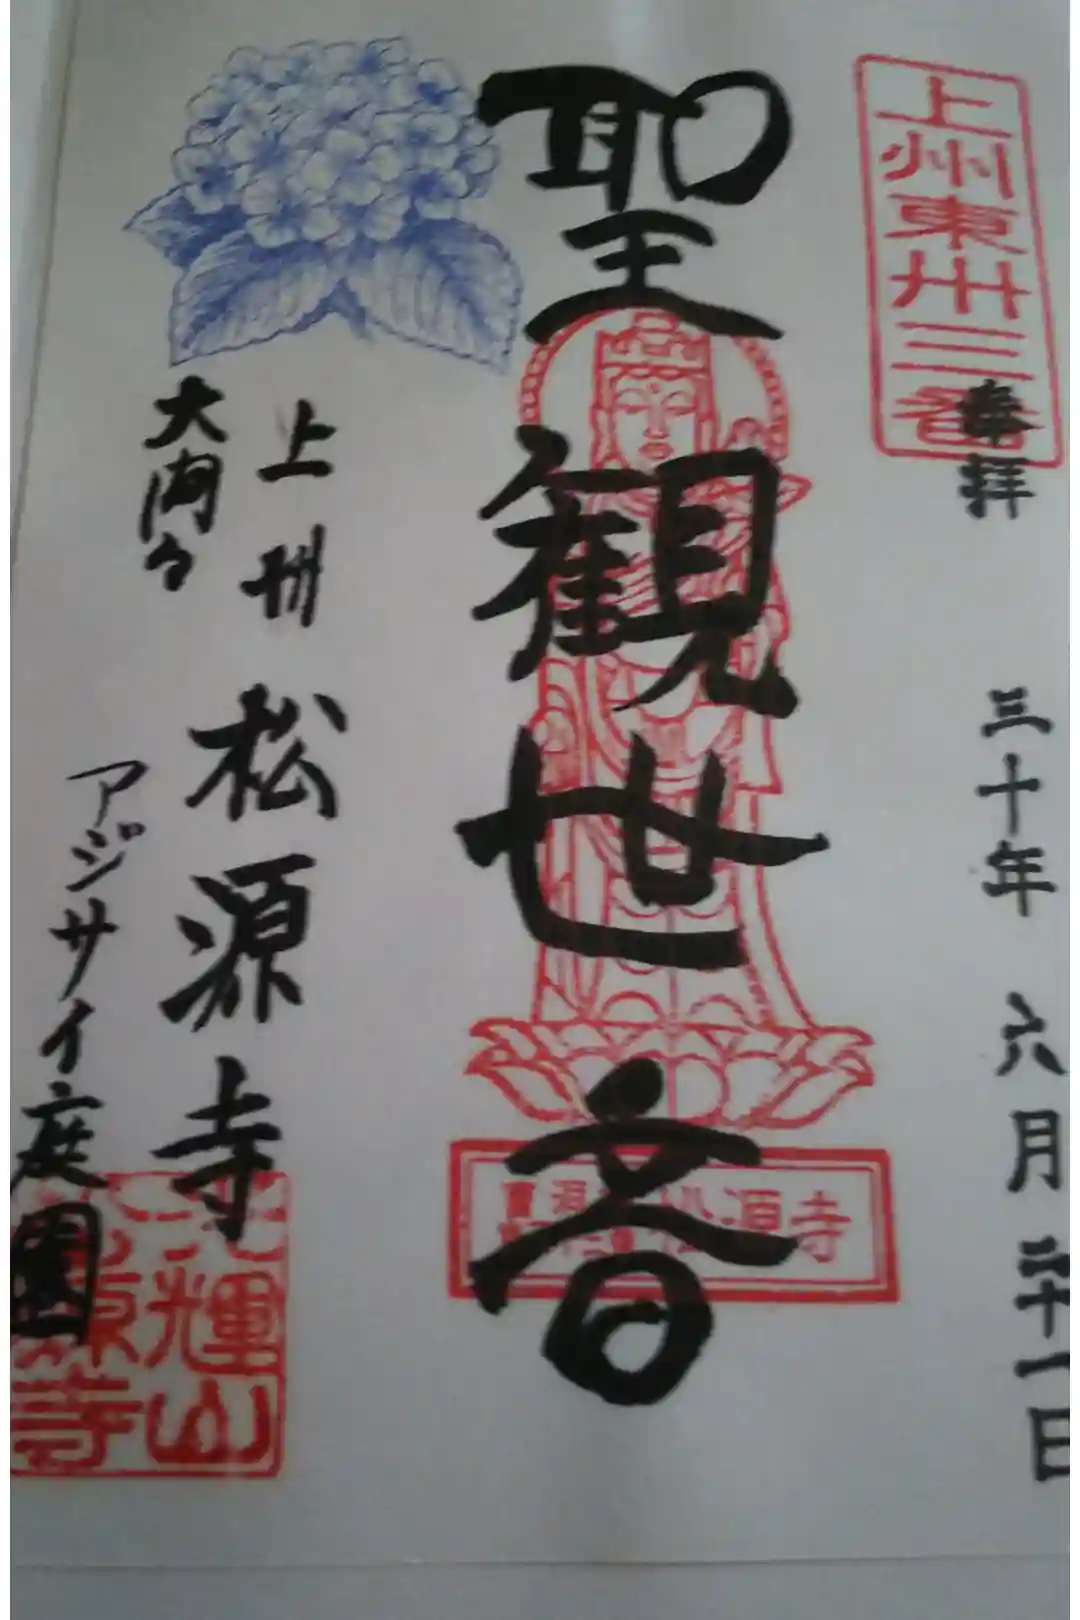 上州東州三番
奉拝
三十年 六月 二十一日
聖観世音
松源寺
上州 松源寺
大間々
アジサイ庭園
光輝山
松源寺